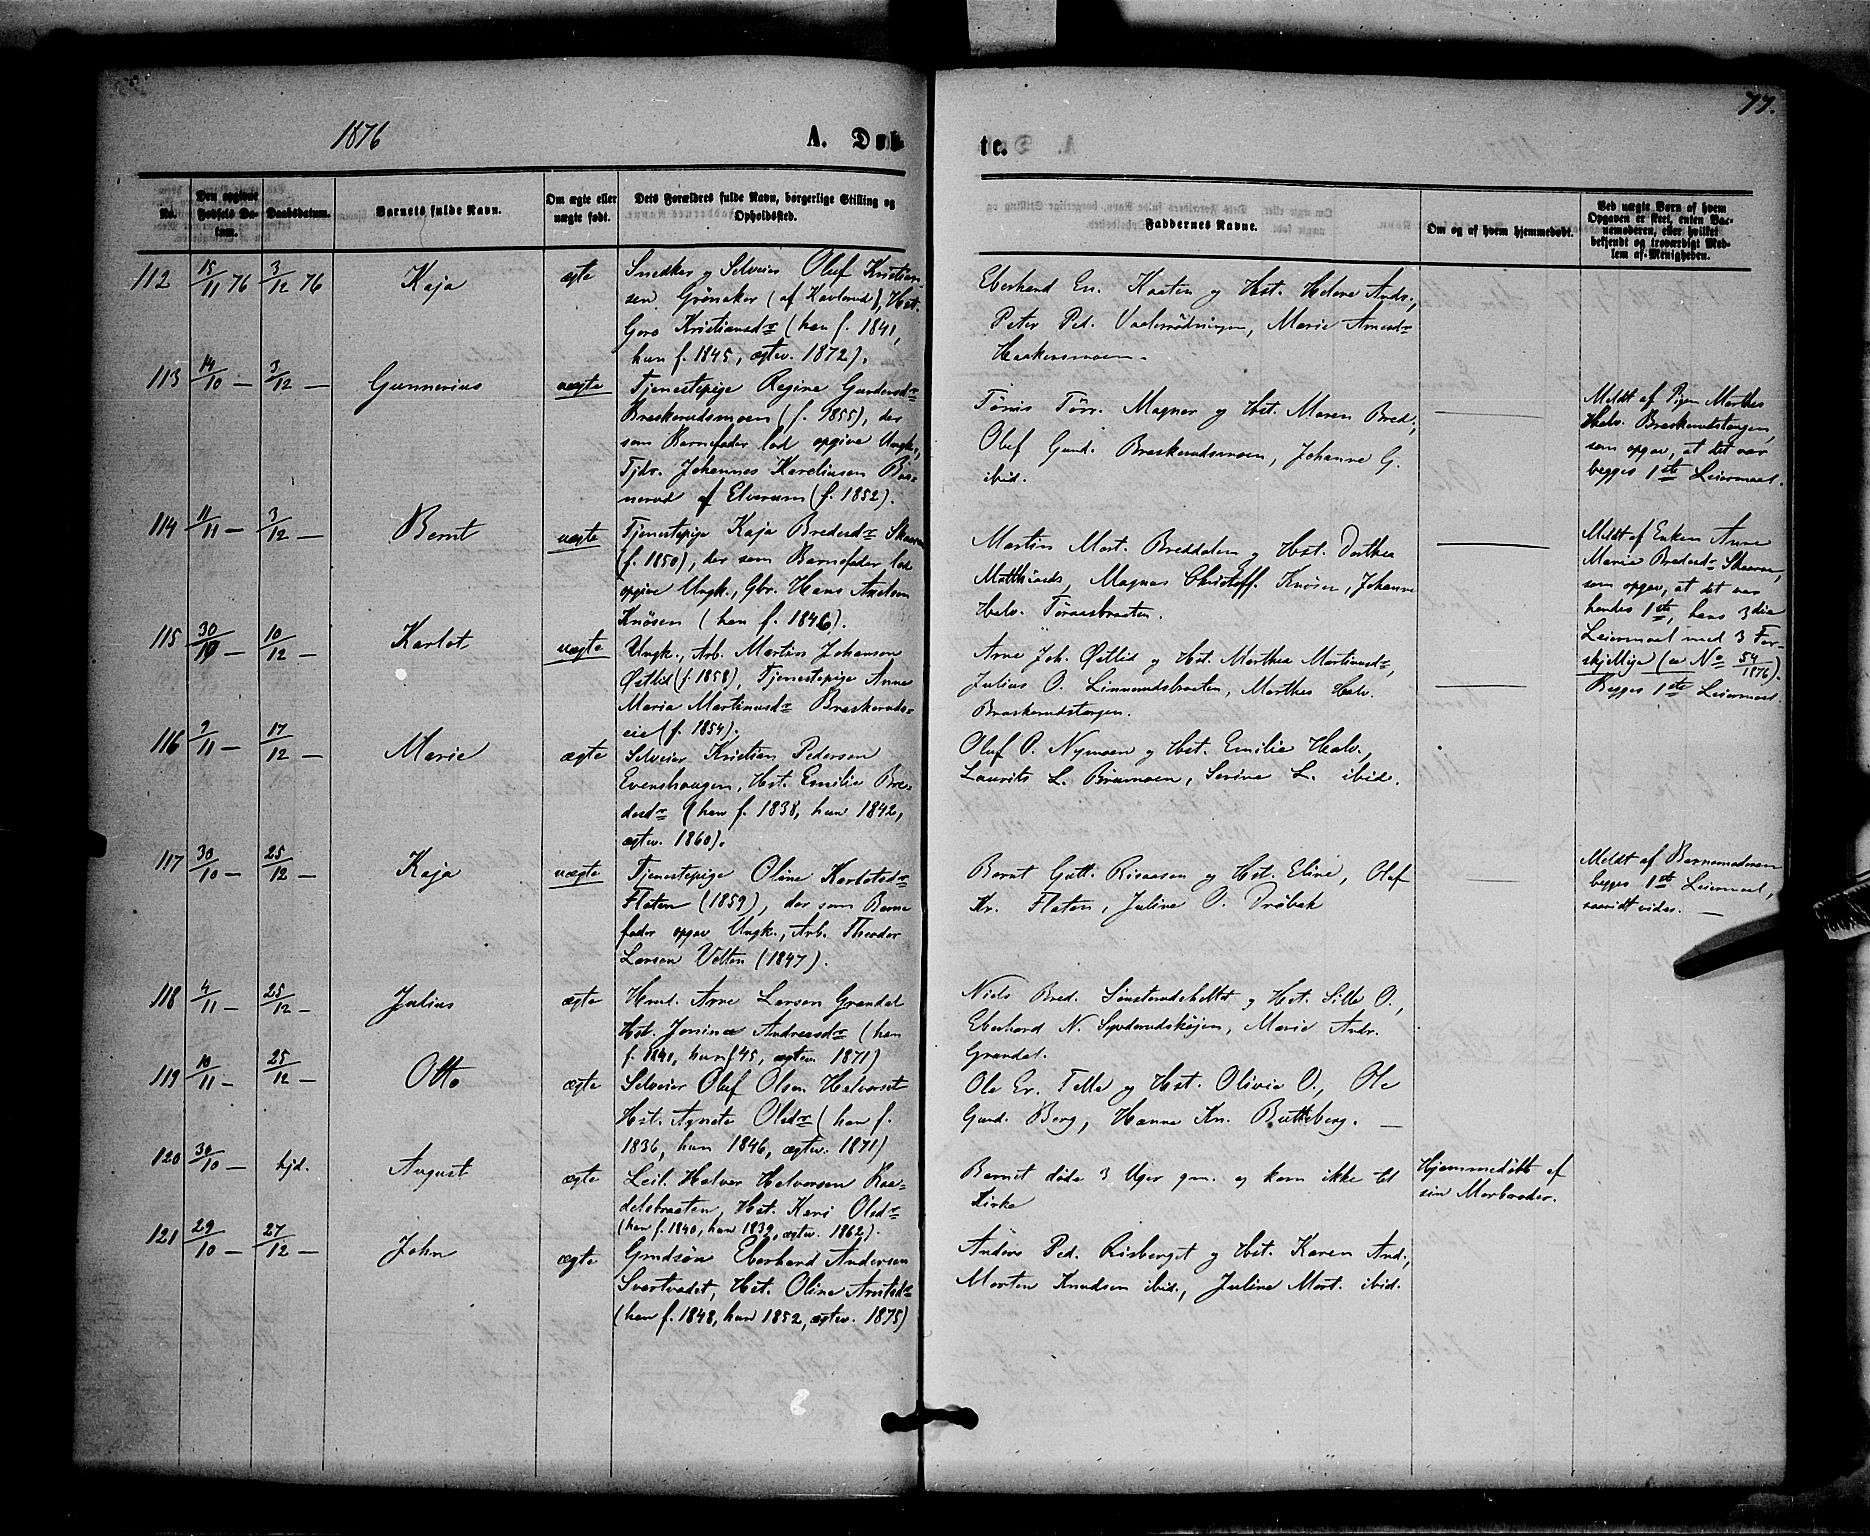 1876
A. Døb-
te.
77.
No.
Den opgivne Fødsels Da-
tum.
Daabsdatum.
Barnets fulde Navn.
Om ægte eller
uægte født.
Dets Forældres fulde Navn, borgerlige Stilling og
Opholdssted.
Faddernes Navne.
Om og af hvem hjemmedøbt.
Ved uægte Børn af hvem
Opgaven er skeet, enten Bar-
nemoderen, eller hvilket
bekjendt og troværdigt Med-
lem af Menigheden.
112 15/11 76 3/12 76 Kaja ægte
Snedker og Selveier Oluf Kristian-
sen Grønaker (af Kavlerud), Hst.
Goro Kristiansdr (han f. 1841,
hun f. 1845, ægtev. 1872).
Eberhard Er. Kaaten og Hst. Helene Andr.,
Peter Ped. Vaalerødningen, Marie Arnesdr
Haakensmoen.
113 14/10 — 3/12 — Gunnerius uægte
Tjenestepige Regine Gundersdr
Braskerudsmoen (f. 1855), der
som Barnefader lod opgive Ungk.,
Tjdr. Johannes Kareliusen Baa-
nerud af Elverum (f. 1852).
Tønis Tørr. Magnor og Hst. Maren Bred.,
Oluf Gund. Braskerudsmoen, Johanne G.
ibid.
Meldt af Pigen Marthe
Halv. Braskerudstangen,
som opgav, at det var
begges 1ste Leiermaal.
114 11/11 — 3/12 — Bernt uægte
Tjenestepige Kaja Bredesdr Skaaren
(f. 1850), der som Barnefader lod
opgive Ungk., Gbr. Hans Axelsen
Knøsen (han f. 1846).
Martin Mort. Breddalen og Hst. Dorthea
Matthiasds, Magnus Christoff. Knøsen, Johanne
Halv. Tørnasbraaten.
Meldt af Enken Anne
Marie Bredesdr Skaaren,
som opgav, at det var
hendes 1ste, hans 3die
Leiermaal med 3 For-
skjellige (se No 54/1876).
115 30/10 — 10/12 — Karlot uægte
Ungk., Arb. Martin Johansen
Østlid (f. 1858), Tjenestepige Anne
Maria Martinusdr Braskeruds-
eie (f. 1854).
Arne Joh. Østlid og Hst. Marthea Martinusdr,
Julius O. Linnerudsbraaten, Marthea Halv.
Braskerudstangen.
Begges 1ste Leiermaal.
116 9/11 — 17/12 — Marie ægte
Selveier Kristian Pedersen
Evenshaugen, Hst. Emilie Bre-
desdr (han f. 1838, hun 1842,
ægtev. 1860).
Oluf O. Nymoen og Hst. Emilie Halv.,
Laurits L. Brumoen, Serine L. ibid.
117 30/10 — 25/12 — Kaja uægte
Tjenestepige Oline Karlotsdr
Flaten (1859), der som Barne
fader opgav Ungk., Arb. Theodor
Larsen Velten (1847).
Bernt Gutt. Risaasen og Hst. Eline, Olaf
Kr. Flaten, Juline O. Drøbak
Meldt af Barnemoderen
begges 1ste Leiermaal,
saavidt vides. —
118 4/11 — 25/12 — Julius ægte
Hmd. Arne Larsen Grandal
Hst. Jonina Andreasdr (han
f. 1840, hun f 45, ægtev. 1871)
Niels Bred. Sønsterudeholtet og Hst. Sille O.,
Eberhard N. Syvderudskøjen, Marie Andr.
Grandal.
119 10/11 — 25/12 — Otto ægte
Selveier Oluf Olsen Halvorset
Hst. Agnete Olsdr (han f.
1836, hun 1846, ægtev. 1871)
Ole Er. Telle og Hst. Olivia O., Ole
Gund. Berg, Hanna Kn. Butteberg. —
120 30/10 — hjd. August ægte
Leil. Halvor Halvorsen Raa-
delsbraaten, Hst. Kari Olsdr
(han f. 1840, hun 1839, ægtev. 1862).
Barnet døde 3 Uger gm. og kom ikke til
Kirke
Hjemmedøbt af
sin Morbroder.
121 29/10 — 27/12 — John ægte
Grndsøn Eberhard Andersen
Svartvadet, Hst. Oline Arntsdr
(han f. 1848, hun 1852, ægtev. 1875)
Anders Ped. Risberget og Hst. Karen And.,
Morten Knudsen ibid., Juline Mort. ibid.